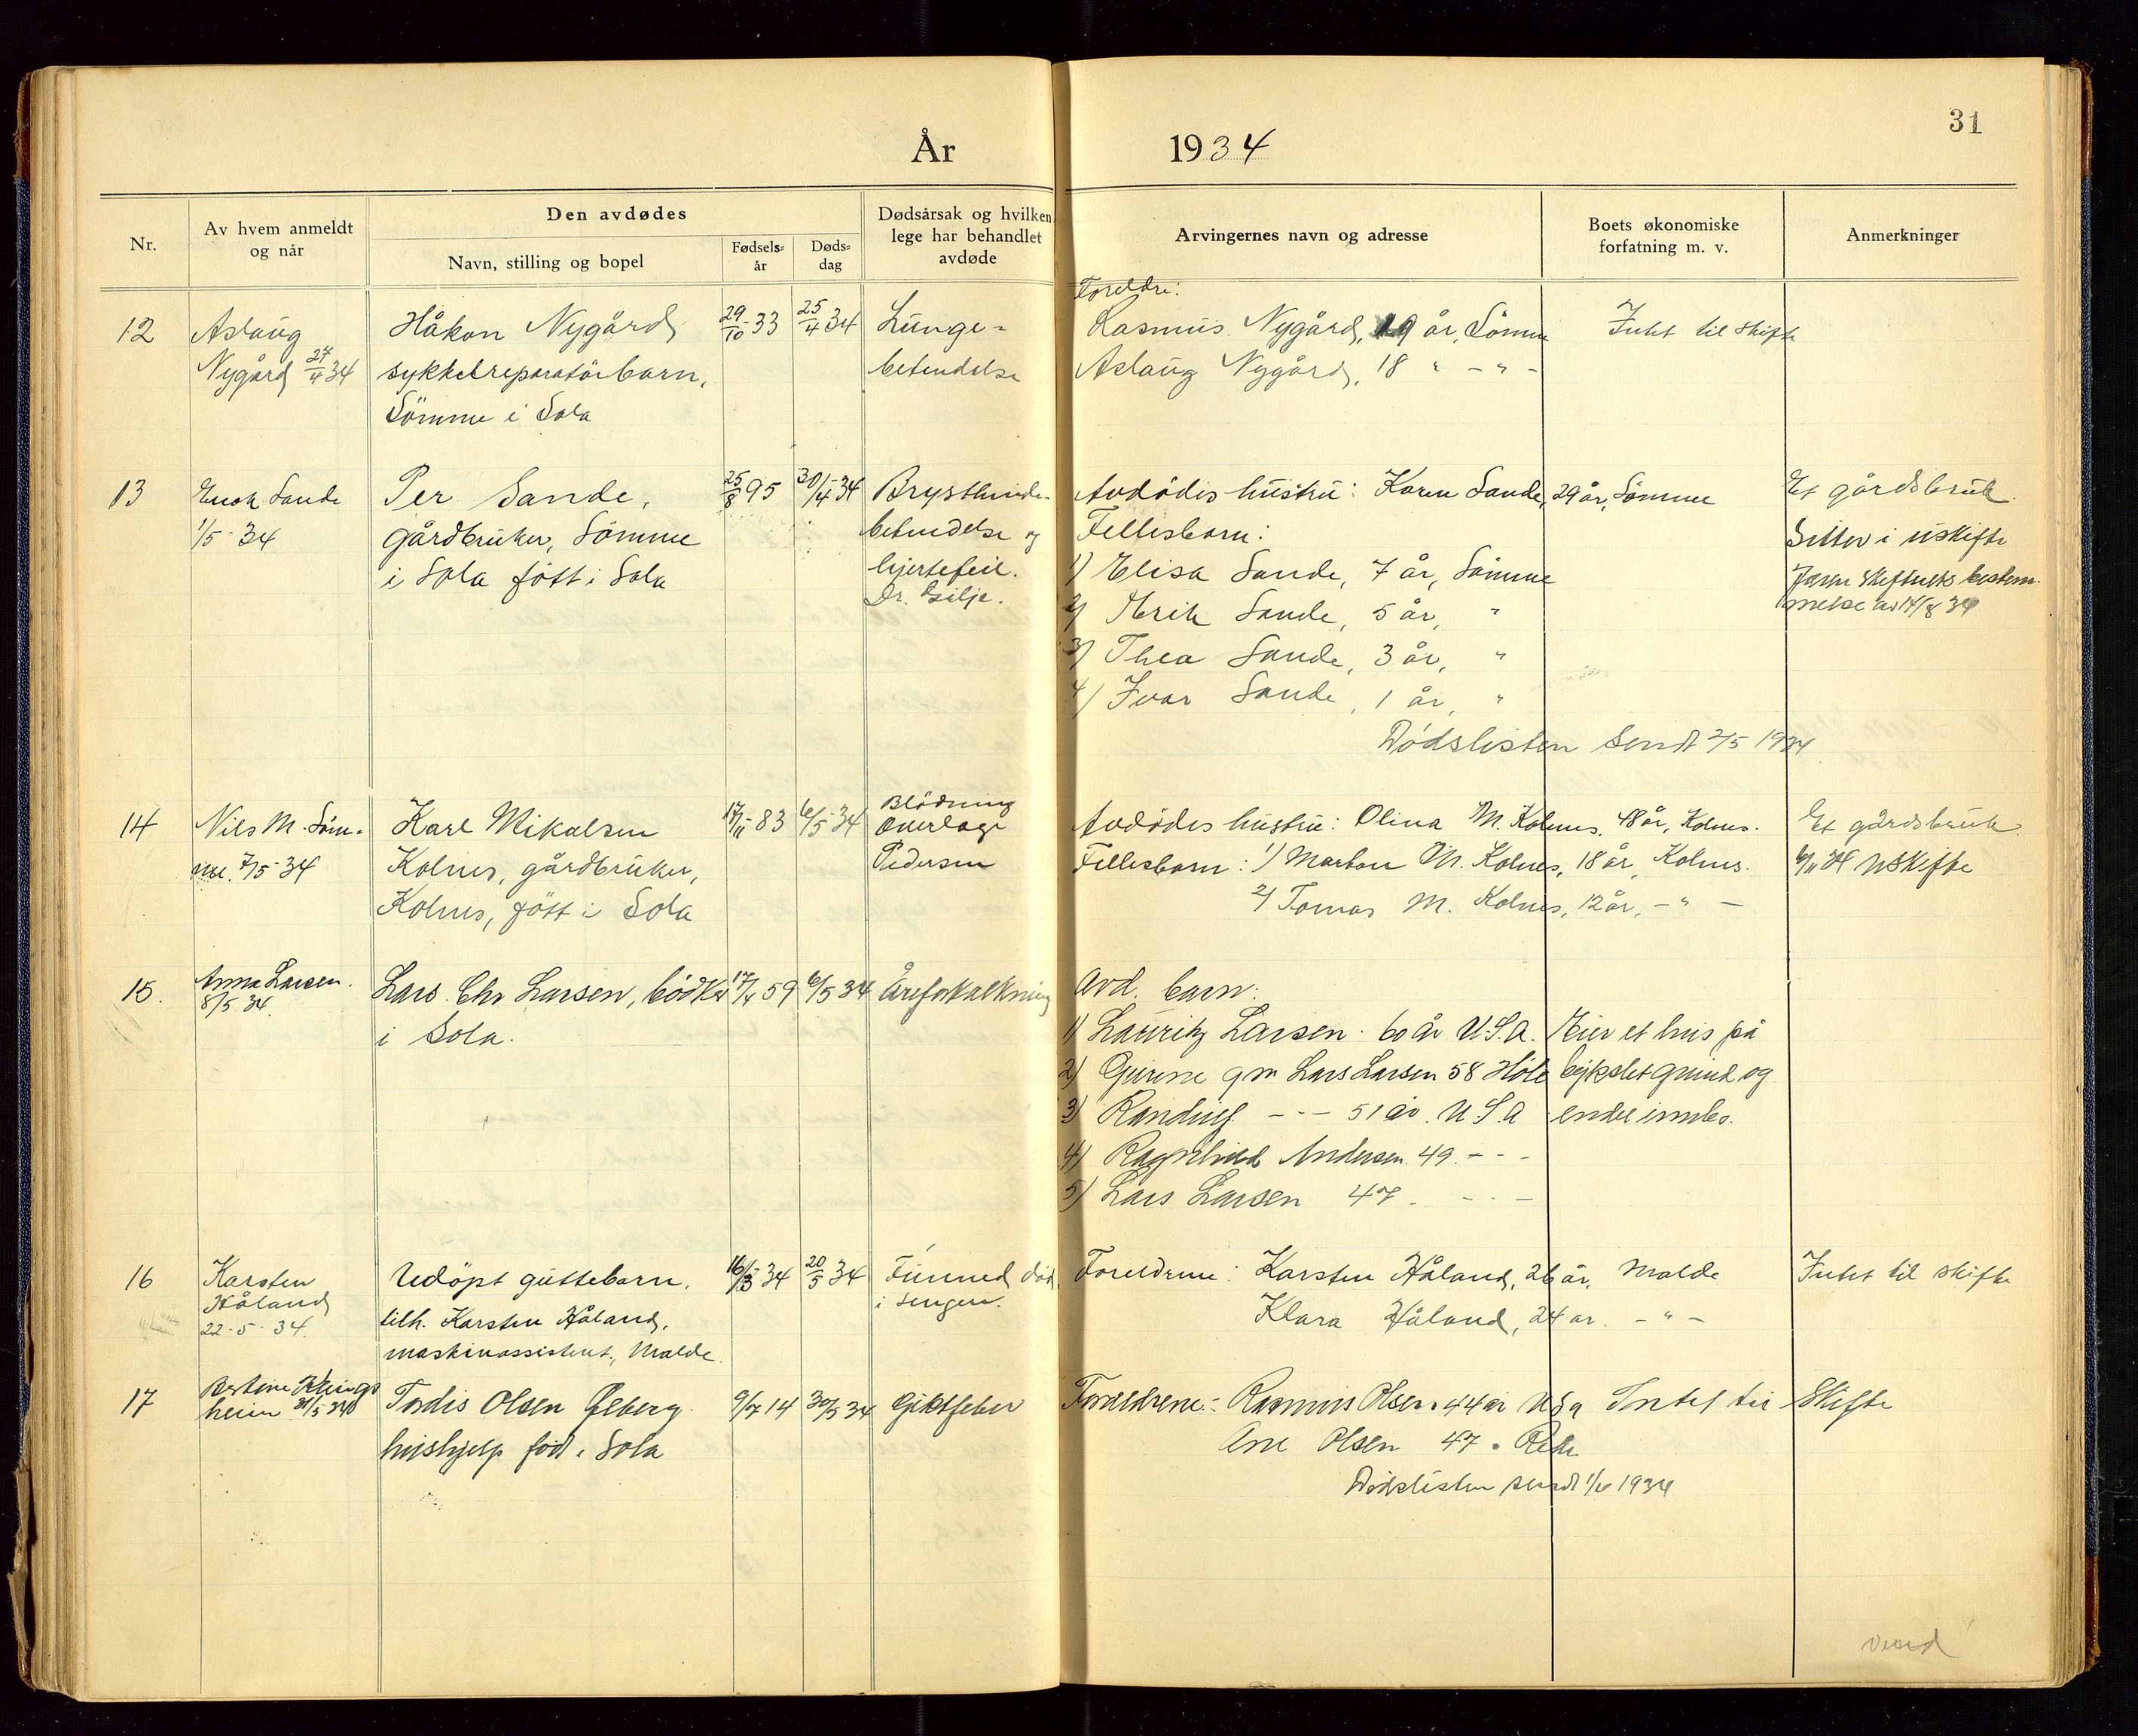 31
År 1934
Nr.
Av hvem anmeldt og når
Den avdødes
Navn, stilling og bopel
Fødselsår
Dødsdag
Dødsårsak og hvilken lege har behandlet avdøde
Arvingernes navn og adresse
Boets økonomiske forfatning m. v.
Anmerkninger
Foreldre:
12 Aslaug Håkon Nygård 29/10-33 25/4 34 Lunge- Rasmus Nygård, 19 år, Sömme Intet til skifte
Nygård 27/4 34 sykkelreparatörbarn, betendelse Aslaug Nygård, 18 " - " -
Sömme i Sola
13 Enok Sande Per Sande, 25/8 95 30/4-34 Brysthinde- Avdödes hustru: Karen Sande, 29 år, Sömme Et gårdsbruk.
1/5-34 gårdbruker, Sömme betendelse og Fellesbarn: Sitter i uskifte
i Sola född i Sola hjertefeil. 1) Elisa Sande, 7 år, Sömme
Dr. Gilje. 2) Erik Sande, 5 år, " av 14/8 34
3) Thea Sande, 3 år, "
4) Ivar Sande, 1 år, "
Dödslisten sendt 2/5 1934
Blödning
14 Nils M. Söm- Karl Mikalsen 17/11-83 6/5-34 Överlæge Avdödes hustru: Olina M. Kolnes, 48 år, Kolnes. Et gårdsbruk
me. 7/5-34 Kolnes, gårdbruker, Pedersen Fellesbarn: 1) Morten M. Kolnes, 18 år, Kolnes. uskifte
Kolnes, fött i Sola 2) Tomas M. Kolnes, 12 år, - " -
15. Anna Larsen. Lars Chr Larsen, bödker 59 6/5 34 Åreforkalkning Avd. barn:
8/5 34. i Sola. 1) Lauritz Larsen. 60 år U.S.A. Eier et hus på
2) Gurine gm Lars Larsen 58 Höle bykslet grund og
3) Randveig - - - 51 år. U.S.A endel innbo.
4) Ragnhild Andersen 49. - - -
5) Lars Larsen 47. - - -
16 Karsten Udöpt guttebarn, 34 20/5 34 Funned död Foreldrene: Karsten Håland, 26 år, Malde Intet til skifte
Håland tilh. Karsten Håland, i sengen. Klara Håland, 24 år. - " -
22-5-34. maskinassistent, Malde.
17 Bertine Tordis Olsen Ølberg 9/7 14 30/5 34 Giktfeber Foreldrene: Rasmus Olsen 44 år USA Intet til Skifte
heim 31/5 34 hushjelp föd i Sola Ane Olsen 47
Dödslisten sendt 1/6 1934
Vend